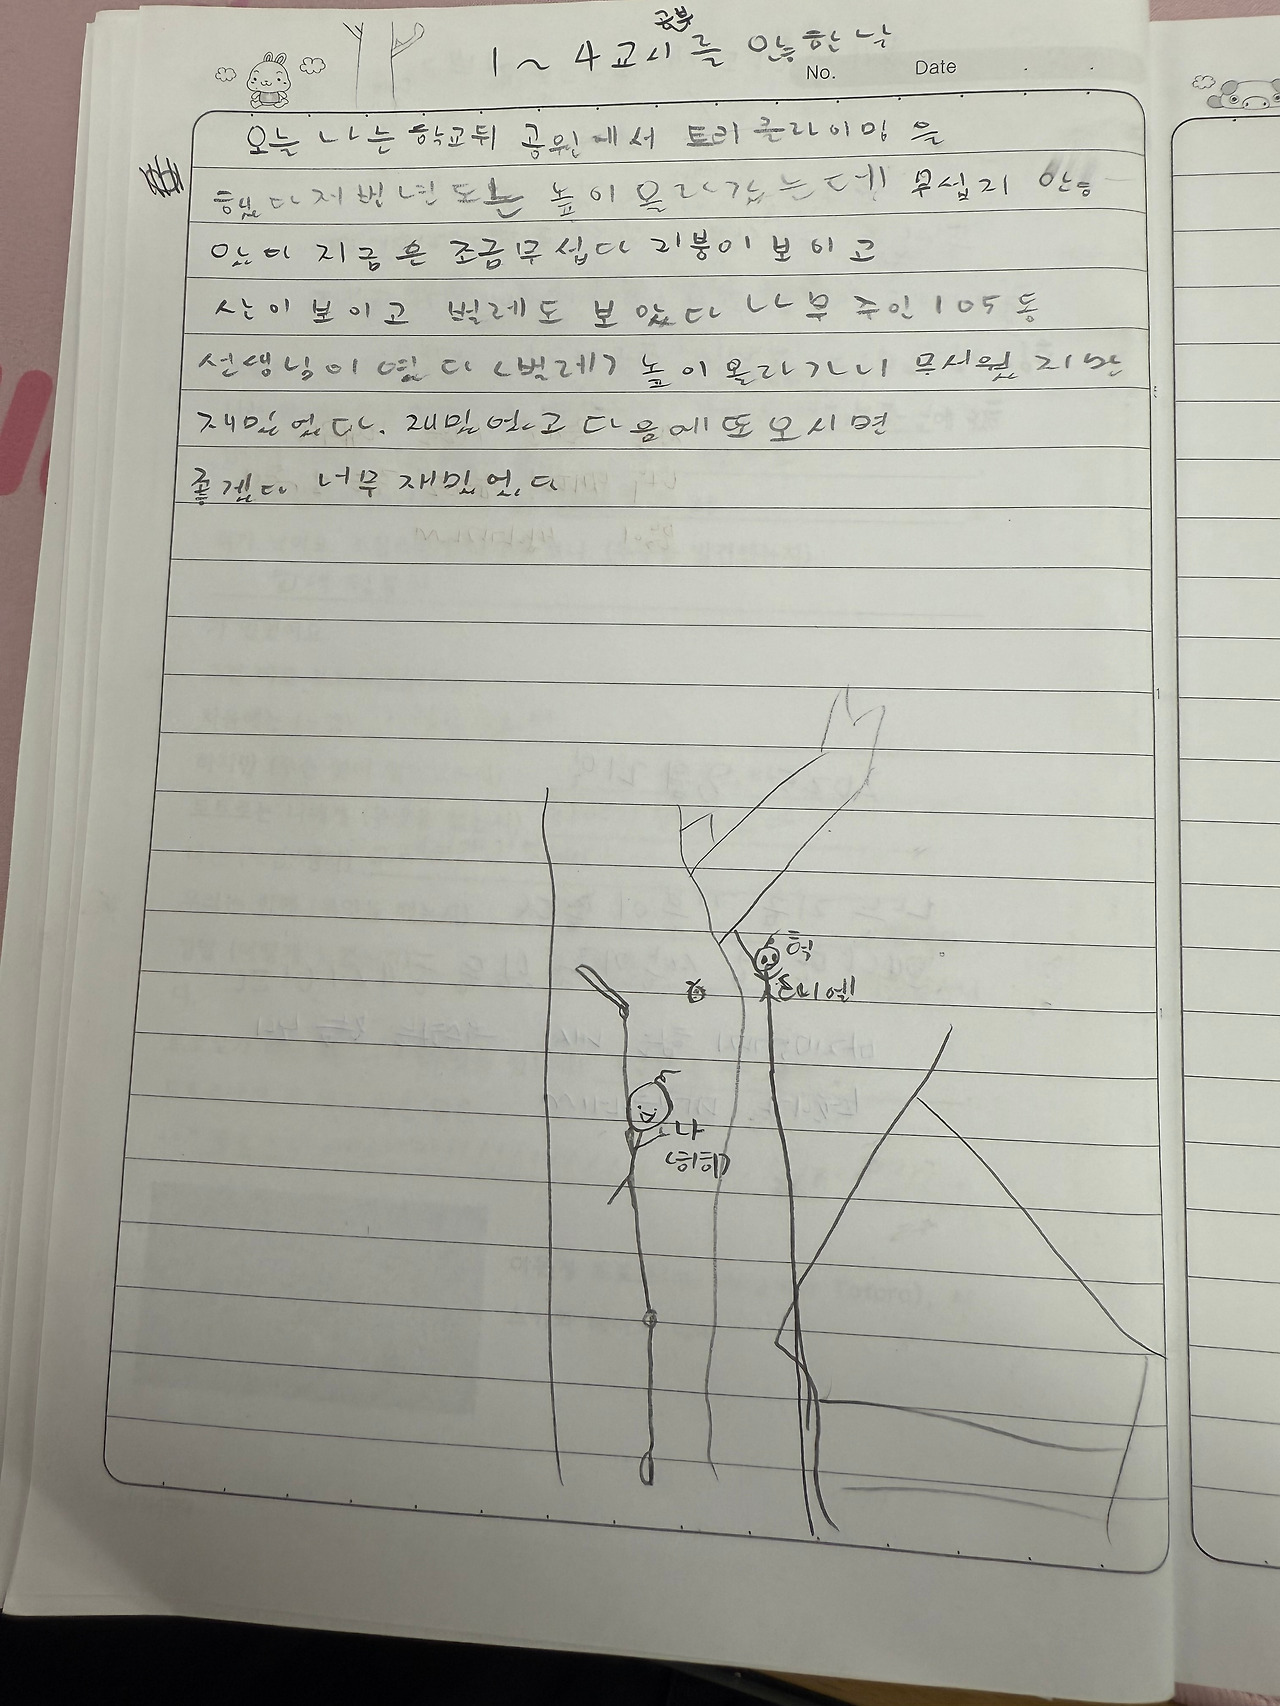 공부
1~4교시를 안한날
No. Date
오늘 나는 학교뒤 공원에서 트리클라이밍 을
했다 저번년도는 높이 올라갔는데 무섭지 안
았다 지금은 조금무섭다 지붕이 보이고
산이 보이고 벌레도 보았다 나무 주인 105동
선생님이 였다<벌레> 높이올라가니 무서웠지만
재밌었다. 재밌었고 다음에또오시면
좋겠다 너무 재밌었다
헉
나
<히히>